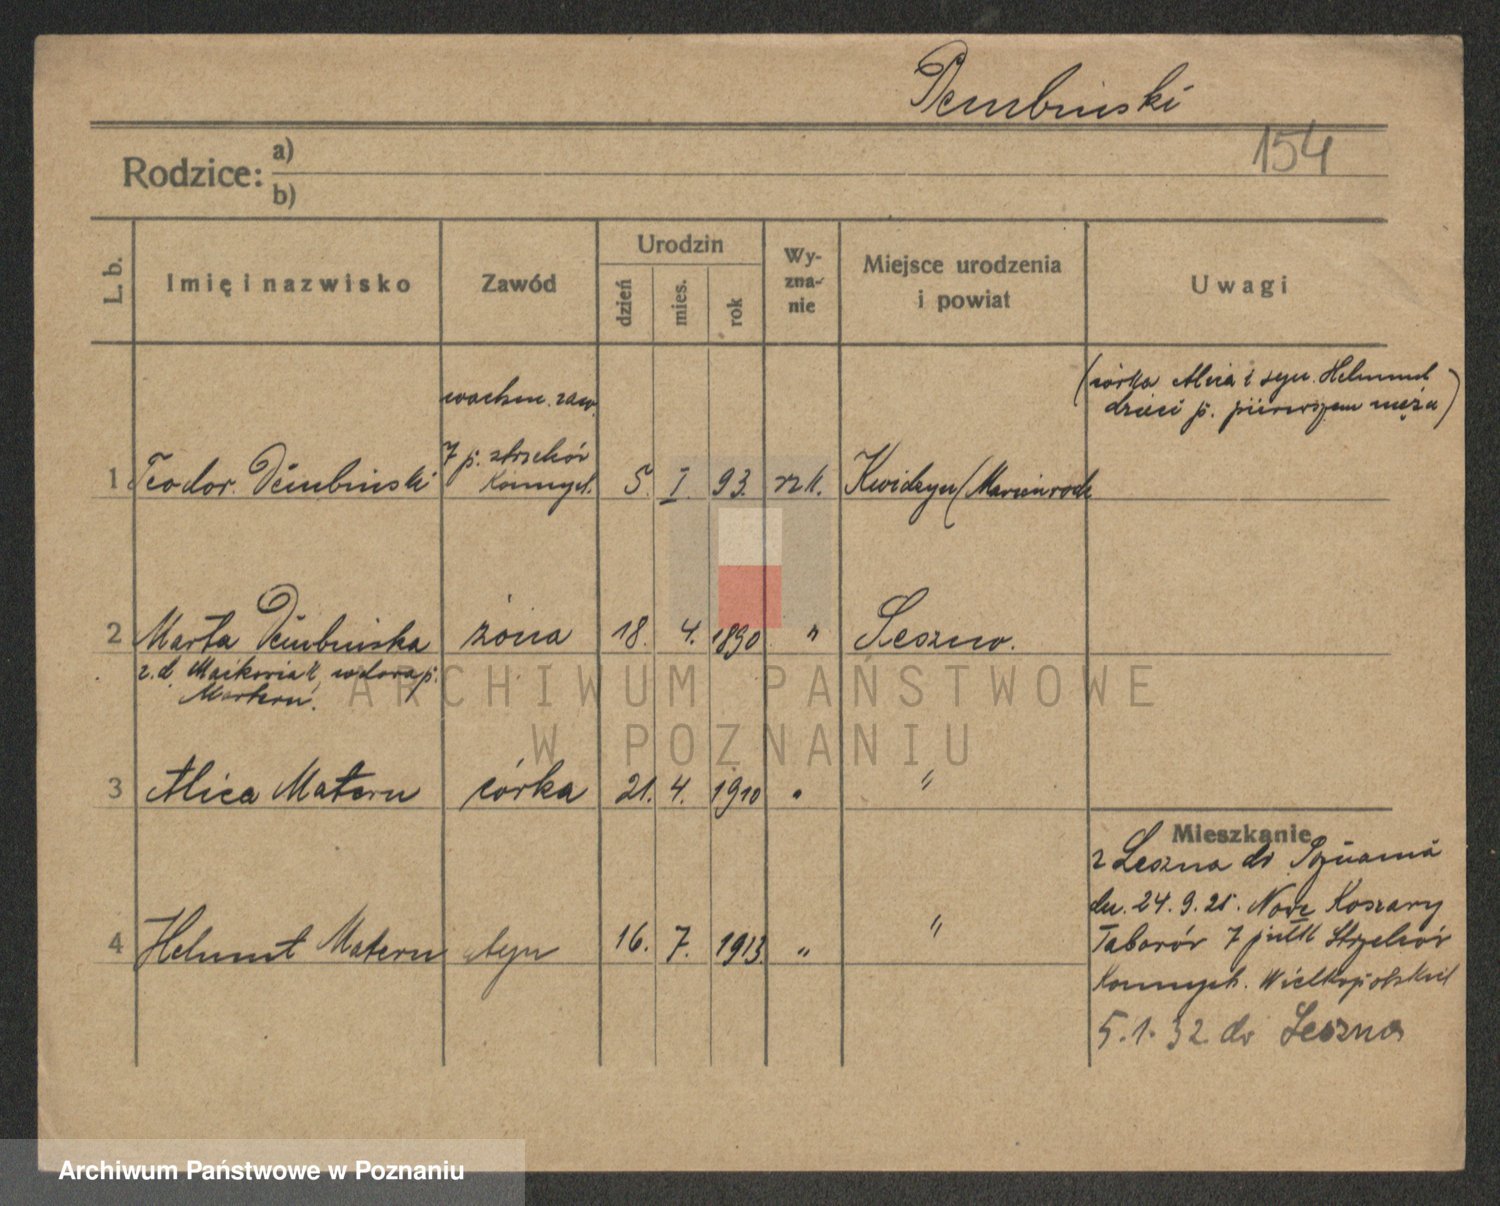 Dembinski
154
Rodzice: a)
b)
L. b.
Imię i nazwisko
Zawód
Urodzin
dzień
mies.
rok
Wy-
zna-
nie
Miejsce urodzenia
i powiat
Uwagi
(córka Alica i syn Helmut
dzieci p. pierwszym mężu)
wachm. zaw.
7 p. strzelców
Konnych.
1 Teodor Dembinski 5. I. 93. rz k. Kwidzyn (Marienwerder
2 Marta Dembinska żona 18. 4. 1890 " Leszno.
z. d. wdowa p.
Matern.
ARCHIWUM PAŃSTWOWE
W POZNANIU
3 Alica Matern córka 21. 4. 1910 " "
4 Helmut Matern syn 16. 7. 1913. " "
Mieszkanie
z Leszna do Poznania
dn. 24. 9. 21. Nowe Koszary
Taborów 7 pułk Strzelców
Konnych. Wielkopolskich
5. 1. 32 do Leszna
Archiwum Państwowe w Poznaniu